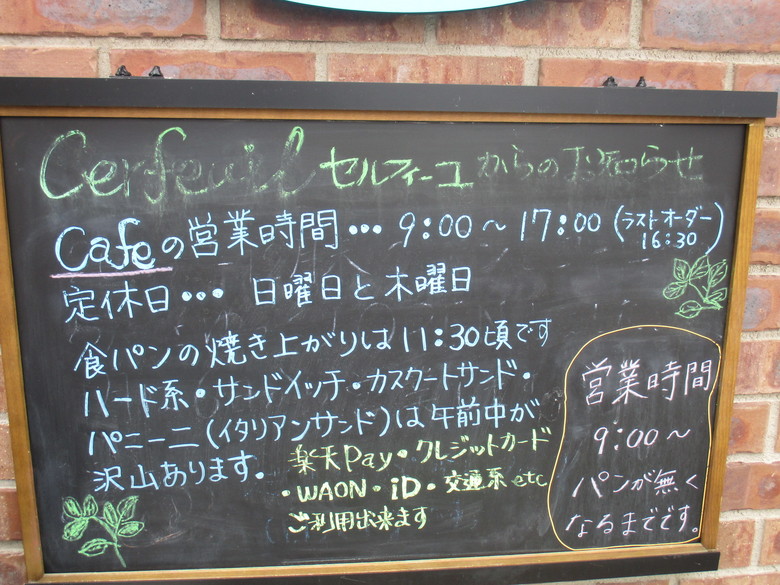 Cerfeuil セルフィーユ からのお知らせ
Cafeの営業時間… 9:00〜17:00 (ラストオーダー 16:30)
定休日… 日曜日と木曜日
食パンの焼き上がりは11:30頃です
ハード系・サンドイッチ・カスクートサンド・
パニーニ(イタリアンサンド)は午前中が
沢山あります。
楽天Pay・クレジットカード
・WAON・iD・交通系etc
ご利用出来ます
営業時間
9:00〜
パンが無く
なるまでです。